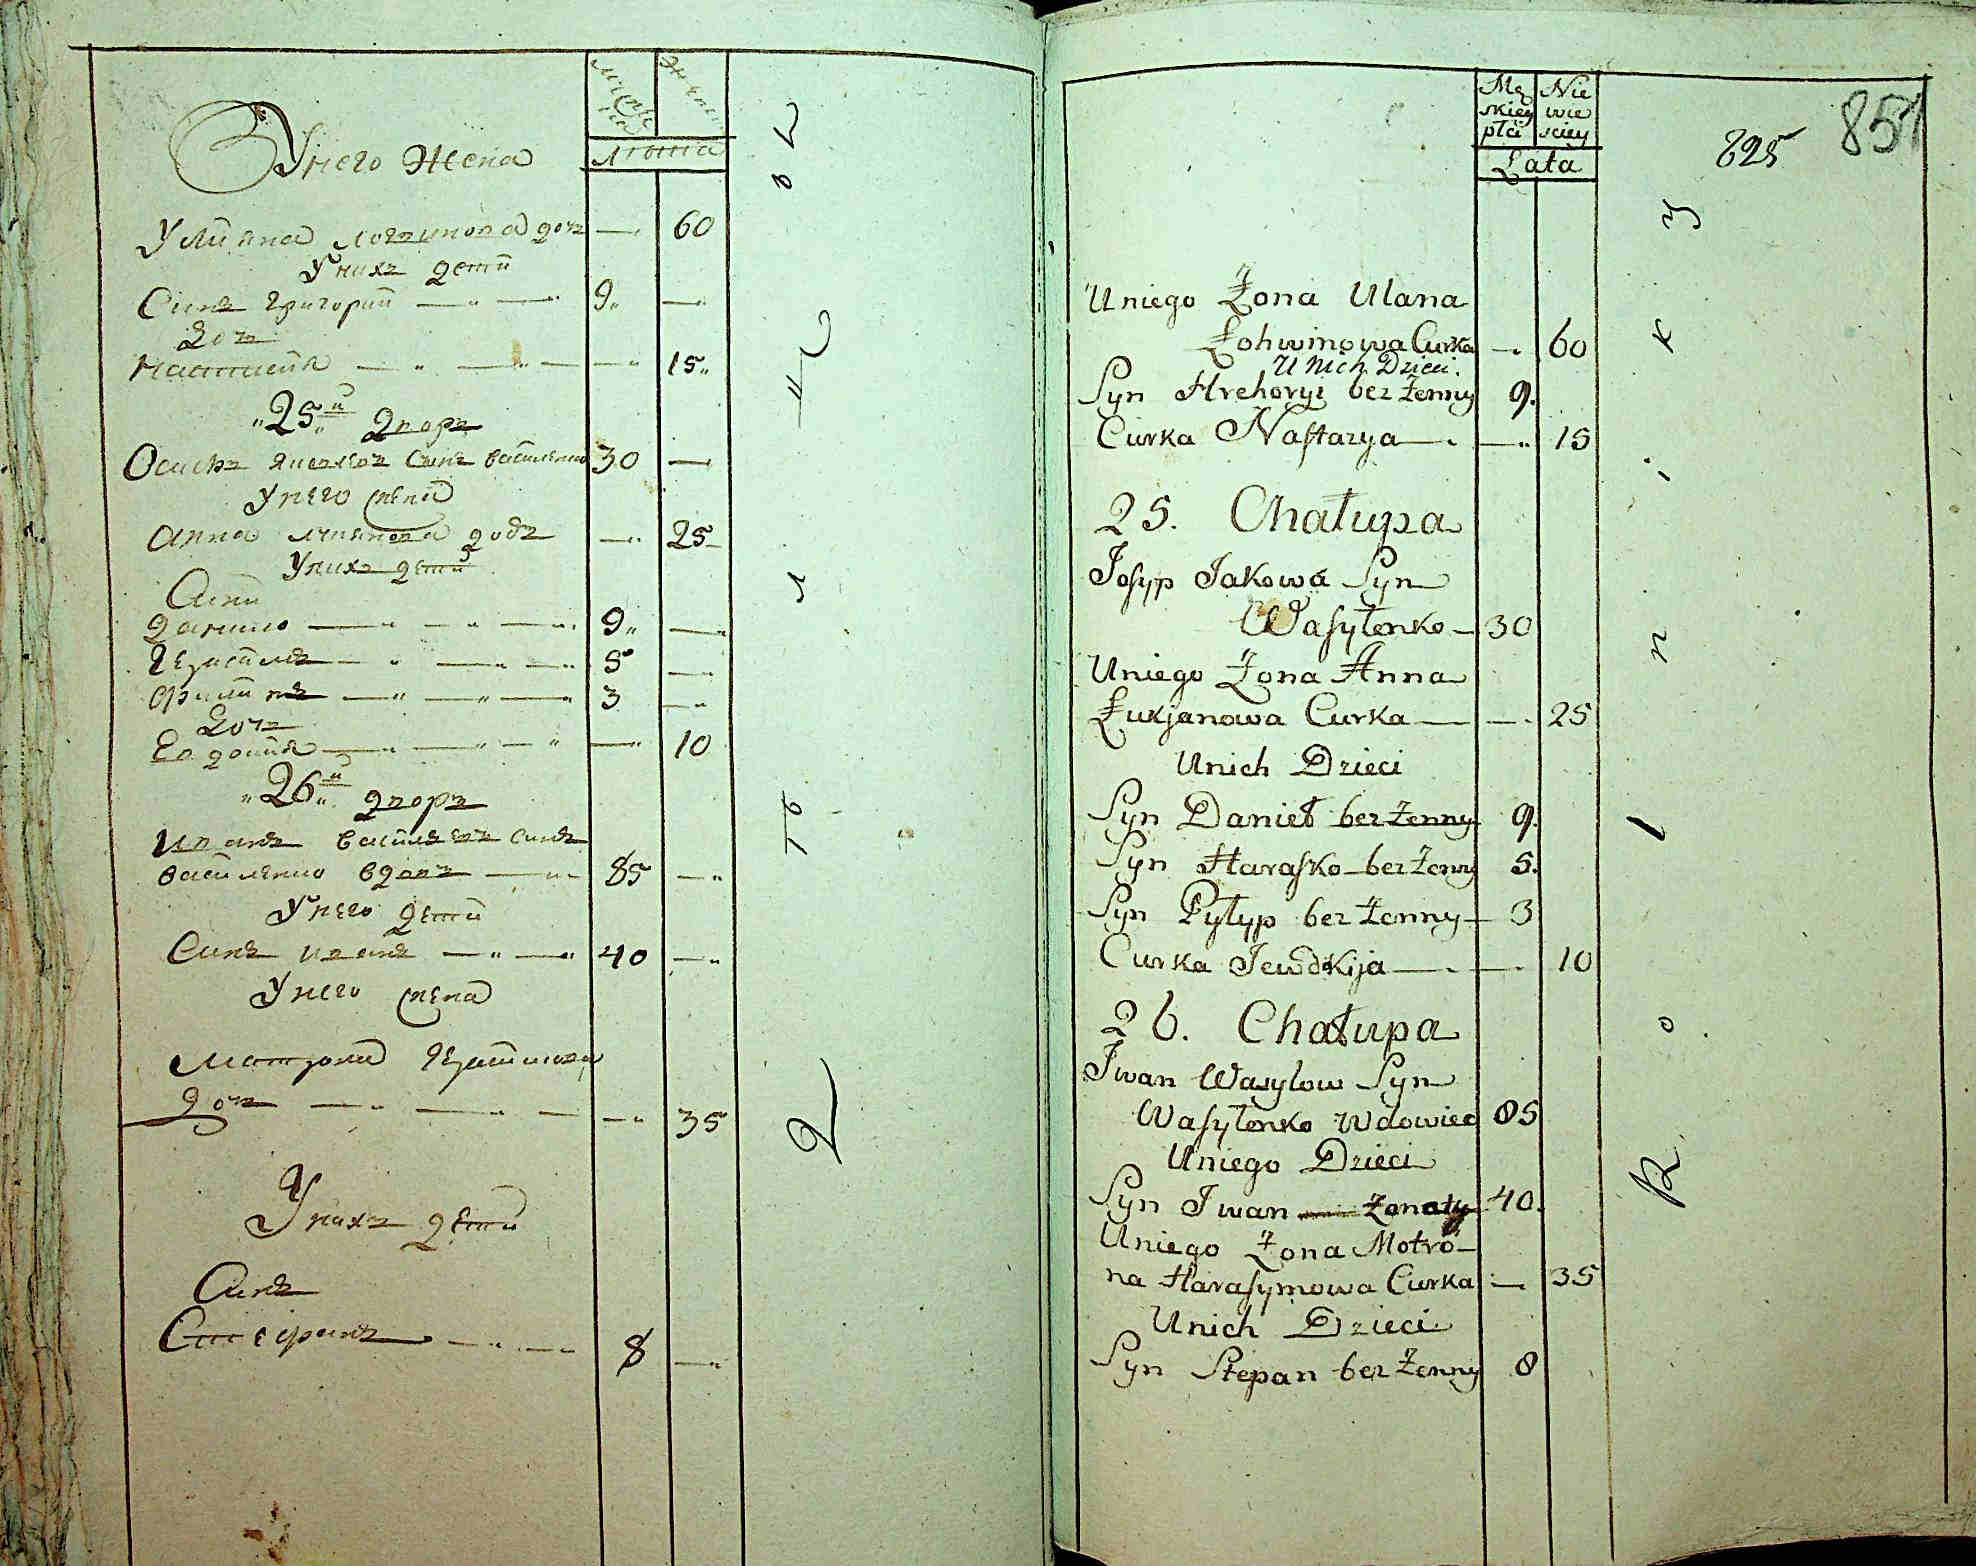 У него жена
Улияна Логвинова дочь — 60
У них дети
Синъ Григорий — 9 —
Доч
Настасия — — 15
25й Дворъ
Осипъ Яковлевъ Синъ Василенко 30 —
У него жена
Анна Лукянова дочь — 25
У них дети
Сини
Данило — 9 —
Герасимъ — 5 —
Филипъ — 3 —
Доч
Евдокия — — 10
26й дворъ
Иванъ Василевъ Синъ
Василенко вдовъ — 85 —
У него дети
Синъ Иванъ — 40 —
У него жена
Матрона Герасимова
Доч — — 35
У них дети
Синъ
Стефанъ — 8 —
Męskiey płci
Niewiesciey
Lata
825
851
Uniego Żona Ulana
Łohwinowa Curka — 60
U Nich Dzieci.
Syn Hrehoryi bez Żenny 9.
Curka Nastazya — — 15
25. Chałupa
Josyp Jakowa Syn
Wasylenko — 30
Uniego Żona Anna
Łukjanowa Curka — — 25
Unich Dzieci
Syn Danieł bez Żenny 9.
Syn Harasko bez Żenny 5.
Syn Pyłyp bez Żenny — 3
Curka Jewdokija — — 10
26. Chałupa
Iwan Wasylow Syn
Wasylenko Wdowiec 85
Uniego Dzieci
Syn Iwan — Żonaty 40.
Uniego Żona Motro-
na Harasymowa Curka — 35
Unich Dzieci
Syn Stepan bez Żenny 8
Rolniky